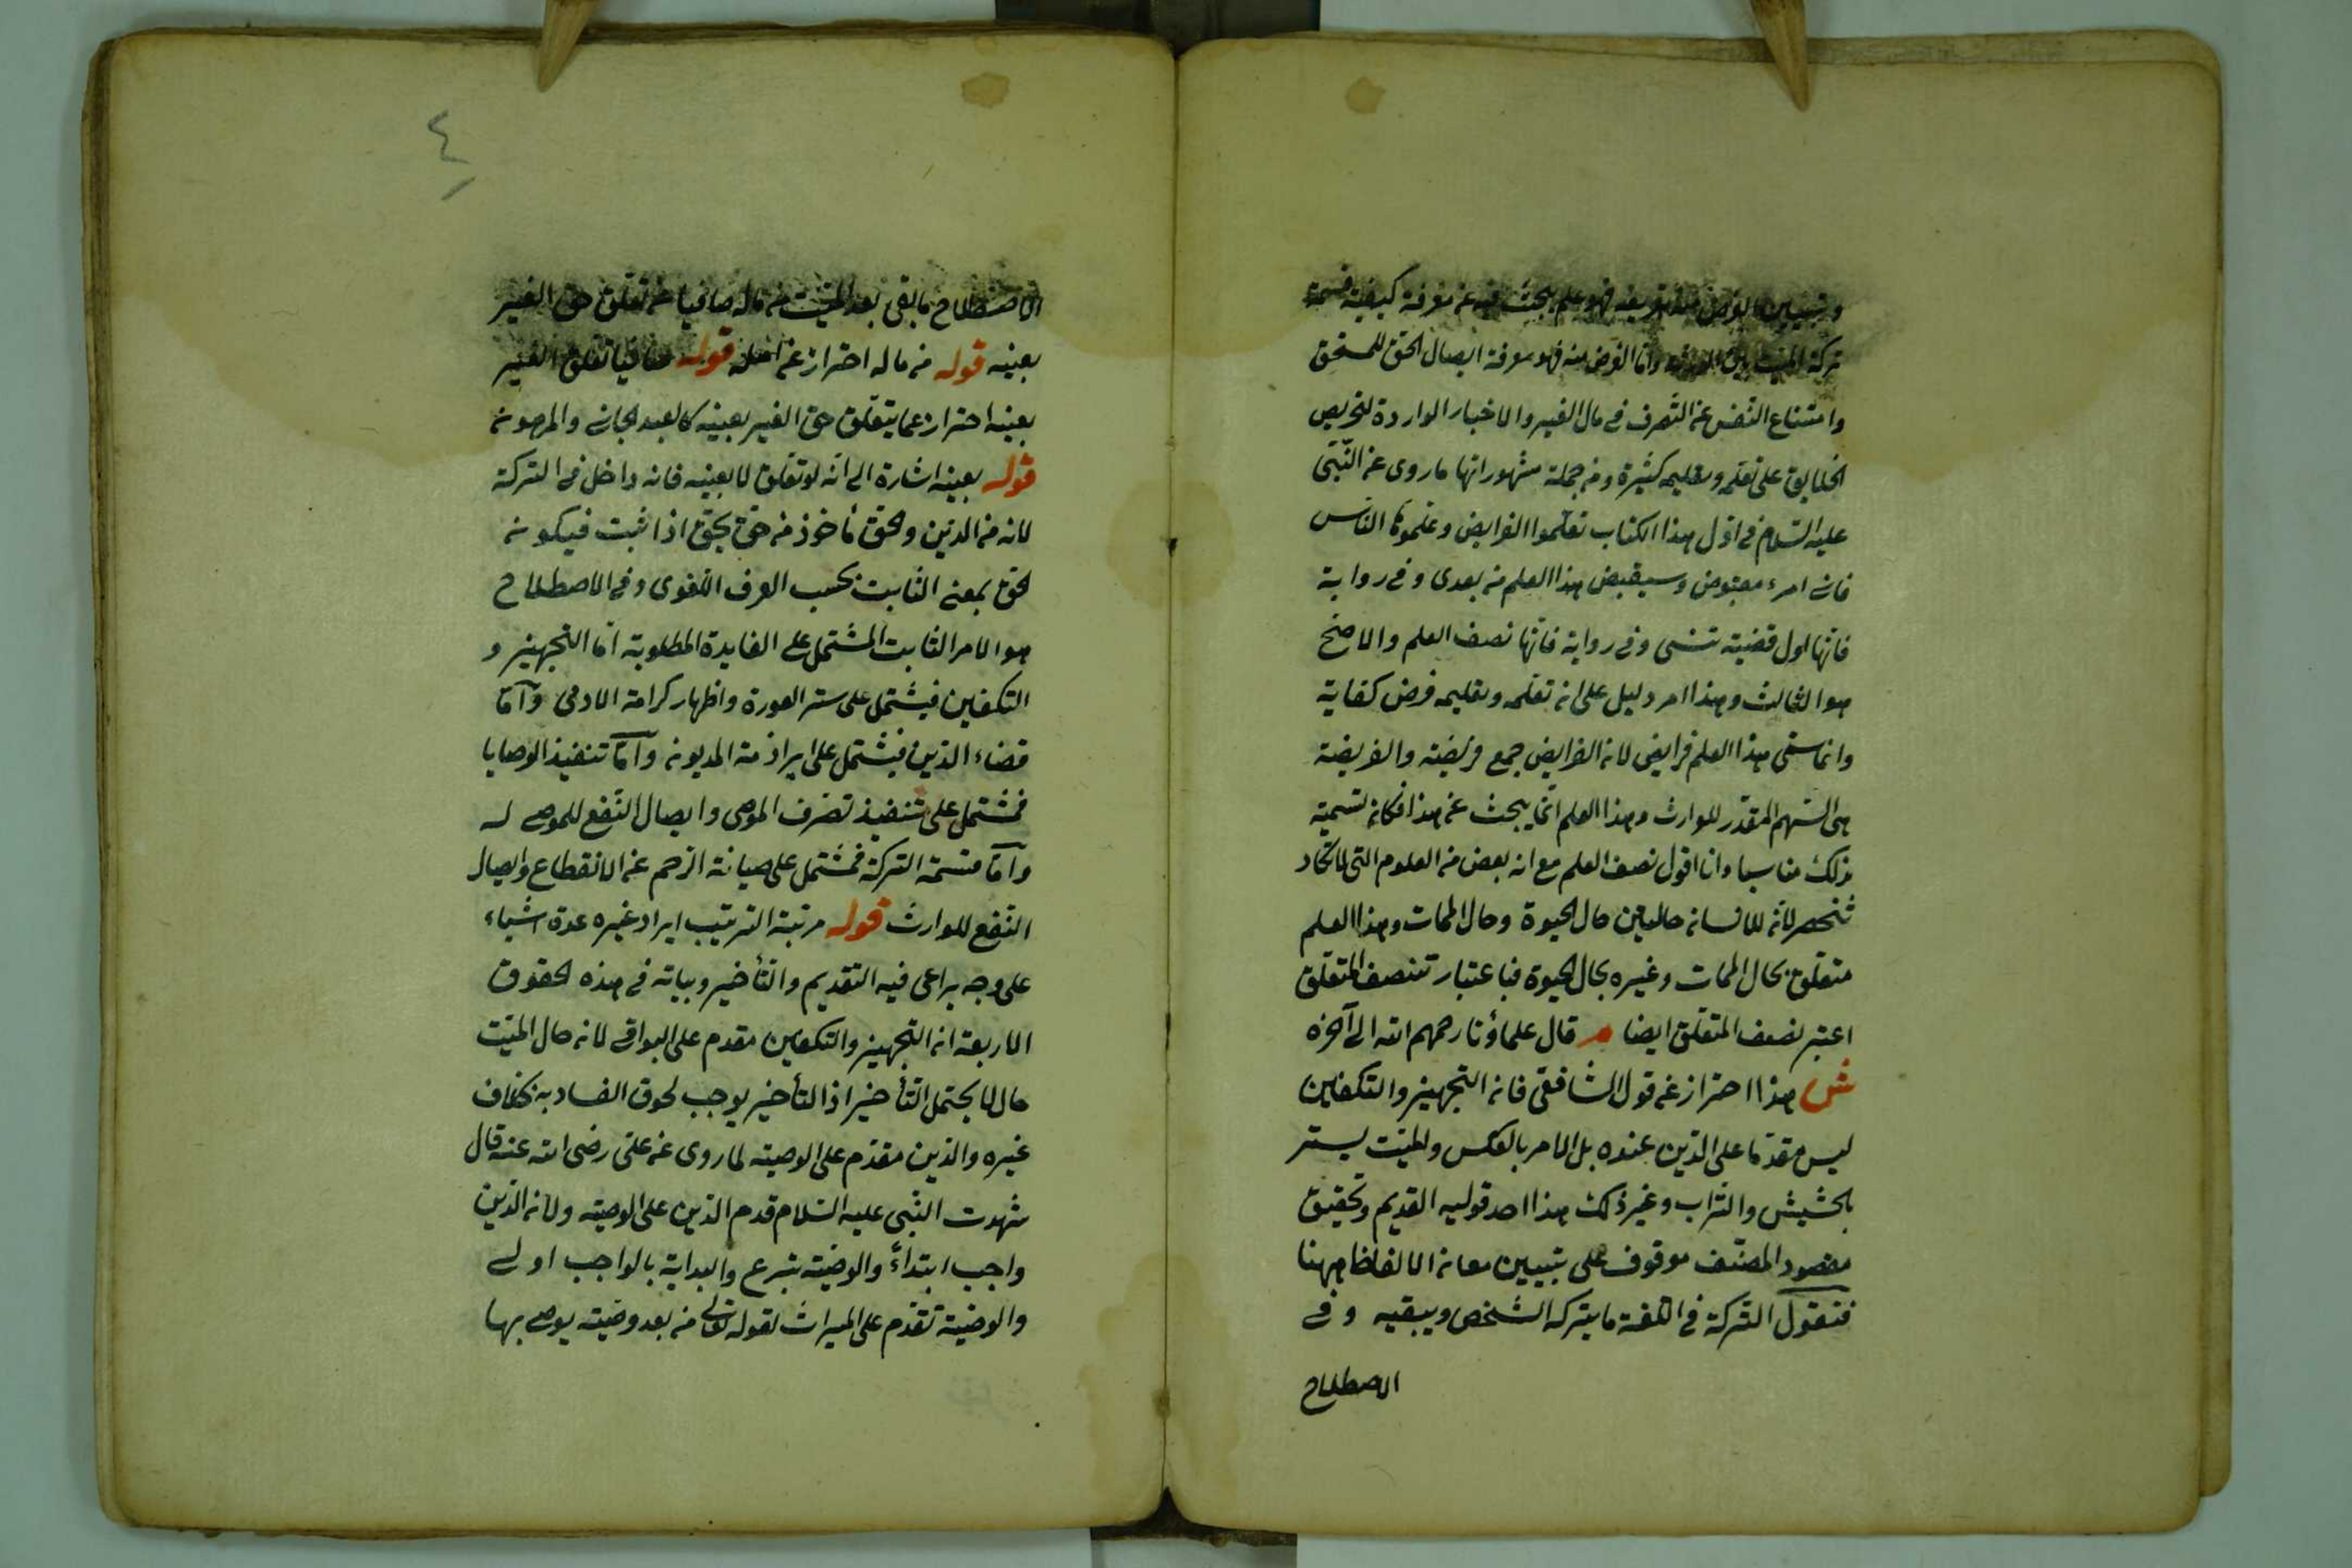 وتبيين الغرض منه تعريفه فهو علم يبحث فيه عن معرفة كيفية قسمة
تركة الميت بين الورثة واما الغرض منه فهو معرفة ايصال الحق للمستحق
وامتناع النفس عن التصرف في مال الغير والاخبار الواردة لتحريص
الخلايق على تعلمه وتعليمه كثيرة ومن جملة مشهوراتها ما روى عن النبى
عليه السلام في اول هذا الكتاب تعلموا الفرايض وعلموها الناس
فانى امرء مقبوض وسيقبض هذا العلم من بعدى وفي رواية
فانها اول قضية تنسى وفي رواية فانها نصف العلم والاصح
هو الثالث وهذا امر دليل على ان تعلمه وتعليمه فرض كفاية
وانما سمى هذا العلم فرايض لان الفرايض جمع فريضة والفريضة
هى السهم المقدر للوارث وهذا العلم انما يبحث عن هذا فكان تسمية
بذلك مناسبا وانا اقول نصف العلم مع انه بعض من العلوم التى لا تكاد
تنحصر لانه للانسان حالتين حال الحيوة وحال الممات وهذا العلم
متعلق بحال الممات وغيره بحال الحيوة فباعتبار تنصف المتعلق
اعتبر نصف المتعلق ايضا م قال علماؤنا رحمهم الله الى آخره
ش هذا احتراز عن قول الشافعى فان التجهيز والتكفين
ليس مقدما على الدين عنده بل الامر بالعكس والميت يستر
بالحشيش والتراب وغير ذلك هذا احد قوليه القديم وتحقيق
مقصود المصنف موقوف على تبيين معانى الالفاظ ههنا
فنقول التركة في اللغة ما يتركه الشخص ويبقيه وفي
الاصطلاح
٤
الاصطلاح ما بقى بعد الميت من ماله صافيا عن تعلق حق الغير
بعينه قوله من ماله احتراز عن قوله صافيا تعلق الغير
بعينه احتراز عما يتعلق حق الغير بعينه كالعبد الجانى والمرهون
قوله بعينه اشارة الى انه لو تعلق لا بعينه فانه داخل في التركة
لانه من الدين والحق مأخوذ من حق يحق اذا ثبت فيكون
الحق بمعنى الثابت بحسب العرف اللغوى وفي الاصطلاح
هو الامر الثابت المشتمل على الفايدة المطلوبة اما التجهيز و
التكفين فيشتمل على ستر العورة واظهار كرامة الادمى واما
قضاء الدين فيشتمل على ابراء ذمة المديون واما تنفيذ الوصايا
فمشتمل على تنفيذ تصرف الموصى وايصال النفع للموصى له
واما قسمة التركة فمشتمل على صيانة الرحم عن الانقطاع وايصال
النفع للوارث قوله مرتبة الترتيب ايراد غيره عدة اشياء
على وجه يراعى فيه التقديم والتأخير وبيانه في هذه الحقوق
الاربعة ان التجهيز والتكفين مقدم على البواقى لان حال الميت
حال لا يحتمل التأخير اذ التأخير يوجب لحوق الفساد به بخلاف
غيره والدين مقدم على الوصية لما روى عن على رضى الله عنه قال
شهدت النبى عليه السلام قدم الدين على الوصية ولان الدين
واجب ابتداءً والوصية تبرع والبداية بالواجب اولى
والوصية تقدم على الميراث لقوله تعالى من بعد وصية يوصى بها